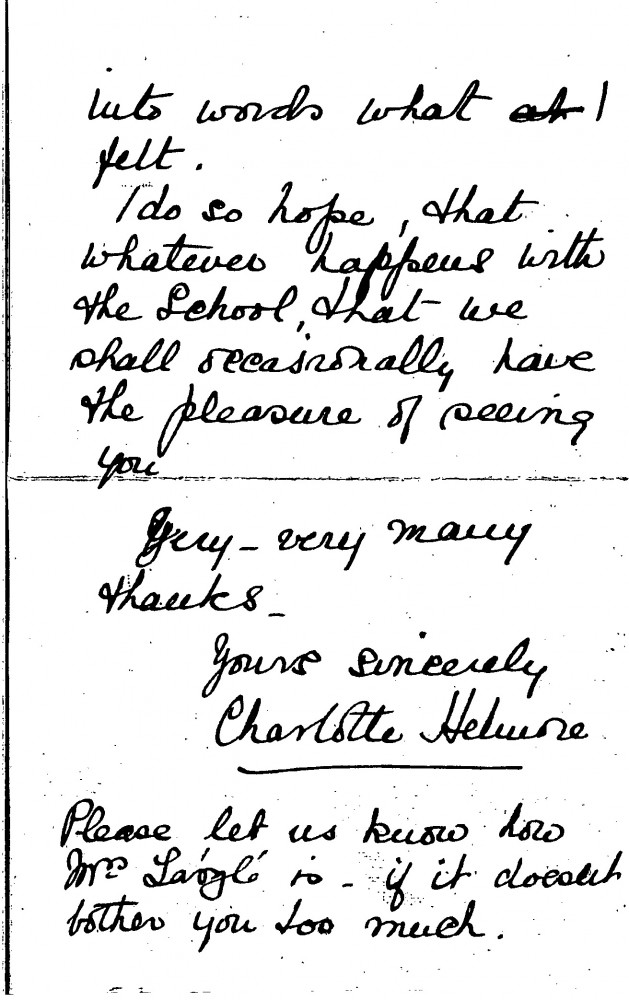 into words what at I
felt.
I do so hope, that
whatever happens with
the School, that we
shall occasionally have
the pleasure of seeing
you
Very - very many
thanks -
Yours sincerely
Charlotte Helmore
Please let us know how
Mrs is - if it doesnt
bother you too much.